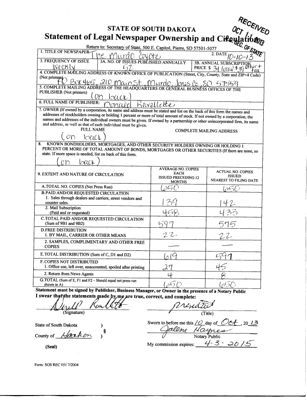 RECEIVED
OCT
SECRETARY OF STATE
STATE OF SOUTH DAKOTA
Statement of Legal Newspaper Ownership and Circulation
Return to: Secretary of State, 500 E. Capitol, Pierre, SD 57501-5077
1. TITLE OF NEWSPAPER
The Mumti
2. DATE
10-10-13
3. FREQUENCY OF ISSUE
weekly
3A. NO. OF ISSUES PUBLISHED ANNUALLY
3B. ANNUAL SUBSCRIPTION
PRICE $
4. COMPLETE MAILING ADDRESS KNOWN OFFICE OF PUBLICATION (Street, City, County, State and ZIP+4 Code)
(Not printer)
5. COMPLETE MAILING ADDRESS OF THE HEADQUARTERS OR GENERAL BUSINESS OFFICES OF THE
PUBLISHER (Not printer)
(on back)
6. FULL NAME OF PUBLISHER:
Donald Ravellette
7. OWNER (If owned by a corporation, its name and address must be stated and list on the back of this form the names and
addresses of stockholders owning or holding 1 percent or more of total amount of stock. If not owned by a corporation, the
names and addresses of the individual owners must be given. If owned by a partnership or other unincorporated firm, its name
and address, as well as that of each individual must be given.
FULL NAME
COMPLETE MAILING ADDRESS
(on back)
8. KNOWN BONDHOLDERS, MORTGAGES, AND OTHER SECURITY HOLDERS OWNING OR HOLDING 1
PERCENT OR MORE OF TOTAL AMOUNT OF BONDS, MORTGAGES OR OTHER SECURITIES (If there are none, so
state. If more space is needed, list on back of this form.
(on back)
9. EXTENT AND NATURE OF CIRCULATION
AVERAGE NO. COPIES
EACH
ISSUED PRECEEDING 12
MONTHS
ACTUAL NO. COPIES
ISSUED
NEAREST TO FILING DATE
A. TOTAL NO. COPIES (Net Press Run)
650
650
B. PAID AND/OR REQUESTED CIRCULATION
1. Sales through dealers and carriers, street vendors and
counter sales
139
142
2. Mail Subscription
(Paid and or requested)
458
433
C. TOTAL PAID AND/OR REQUESTED CIRCULATION
(Sum of 9B1 and 9B2)
597
575
D. FREE DISTRIBUTION
1. BY MAIL, CARRIER OR OTHER MEANS
22
22
2. SAMPLES, COMPLIMENTARY AND OTHER FREE
COPIES
E. TOTAL DISTRIBUTION (Sum of C, D1 and D2)
619
597
F. COPIES NOT DISTRIBUTED
1. Office use, left over, unaccounted, spoiled after printing
27
45
2. Return from News Agents
4
8
G. TOTAL (Sum of E, F1 and F2 - Should equal net press run
shown in A)
650
650
Statement must be signed by Publisher, Business Manager, or Owner in the presence of a Notary Public
I swear that the statements made by me are true, correct, and complete:
(Signature)
President
(Title)
State of South Dakota )
§
County of Haakon )
(Seal)
Sworn to before me this 10 day of Oct, 2013
Notary Public
My commission expires: 4-3-2015
Form: SOS REC 051 7/2004